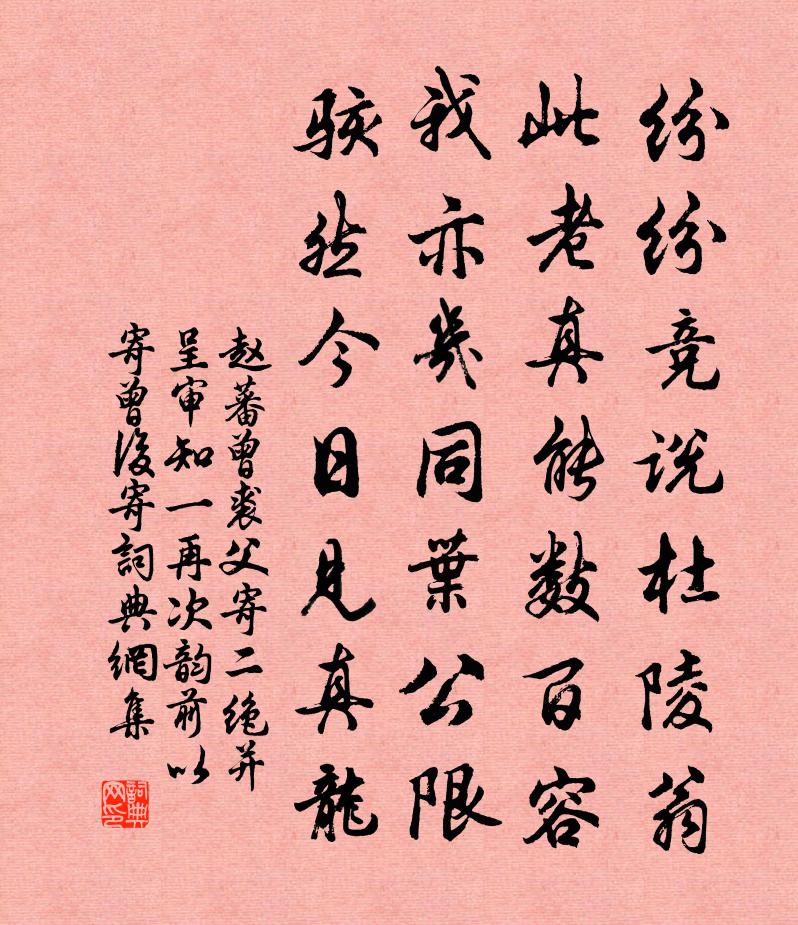 纷纷竞说杜陵翁
此老真能数百容
我亦幾同葉公限
骇然今日见真龍
赵蕃曾裘父寄二绝并
呈审知一再次韵前以
寄曾後寄詞典網集
詞典网印